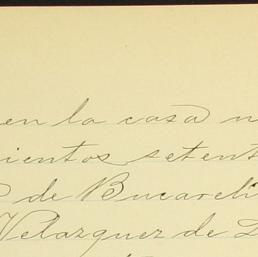 en la casa n
ientos setent
de Bucareli
Velazquez de L